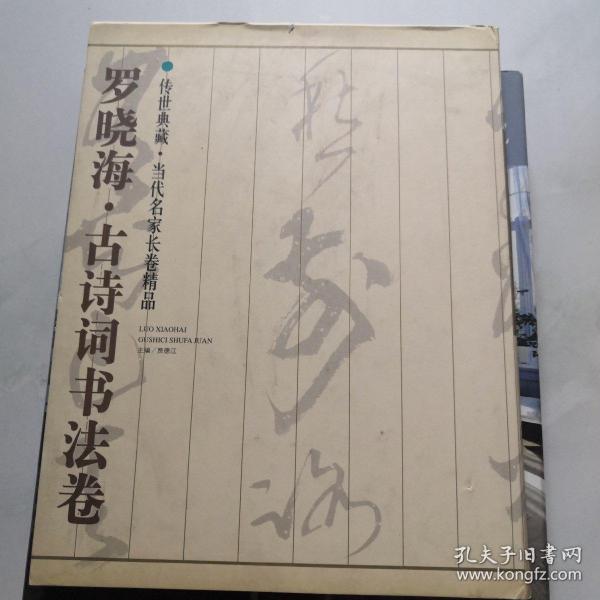 罗晓海·古诗词书法卷
传世典藏·当代名家长卷精品
LUO XIAOHAI
GUSHICI SHUFA JUAN
主编/贾德江
孔夫子旧书网
www.kongfz.com